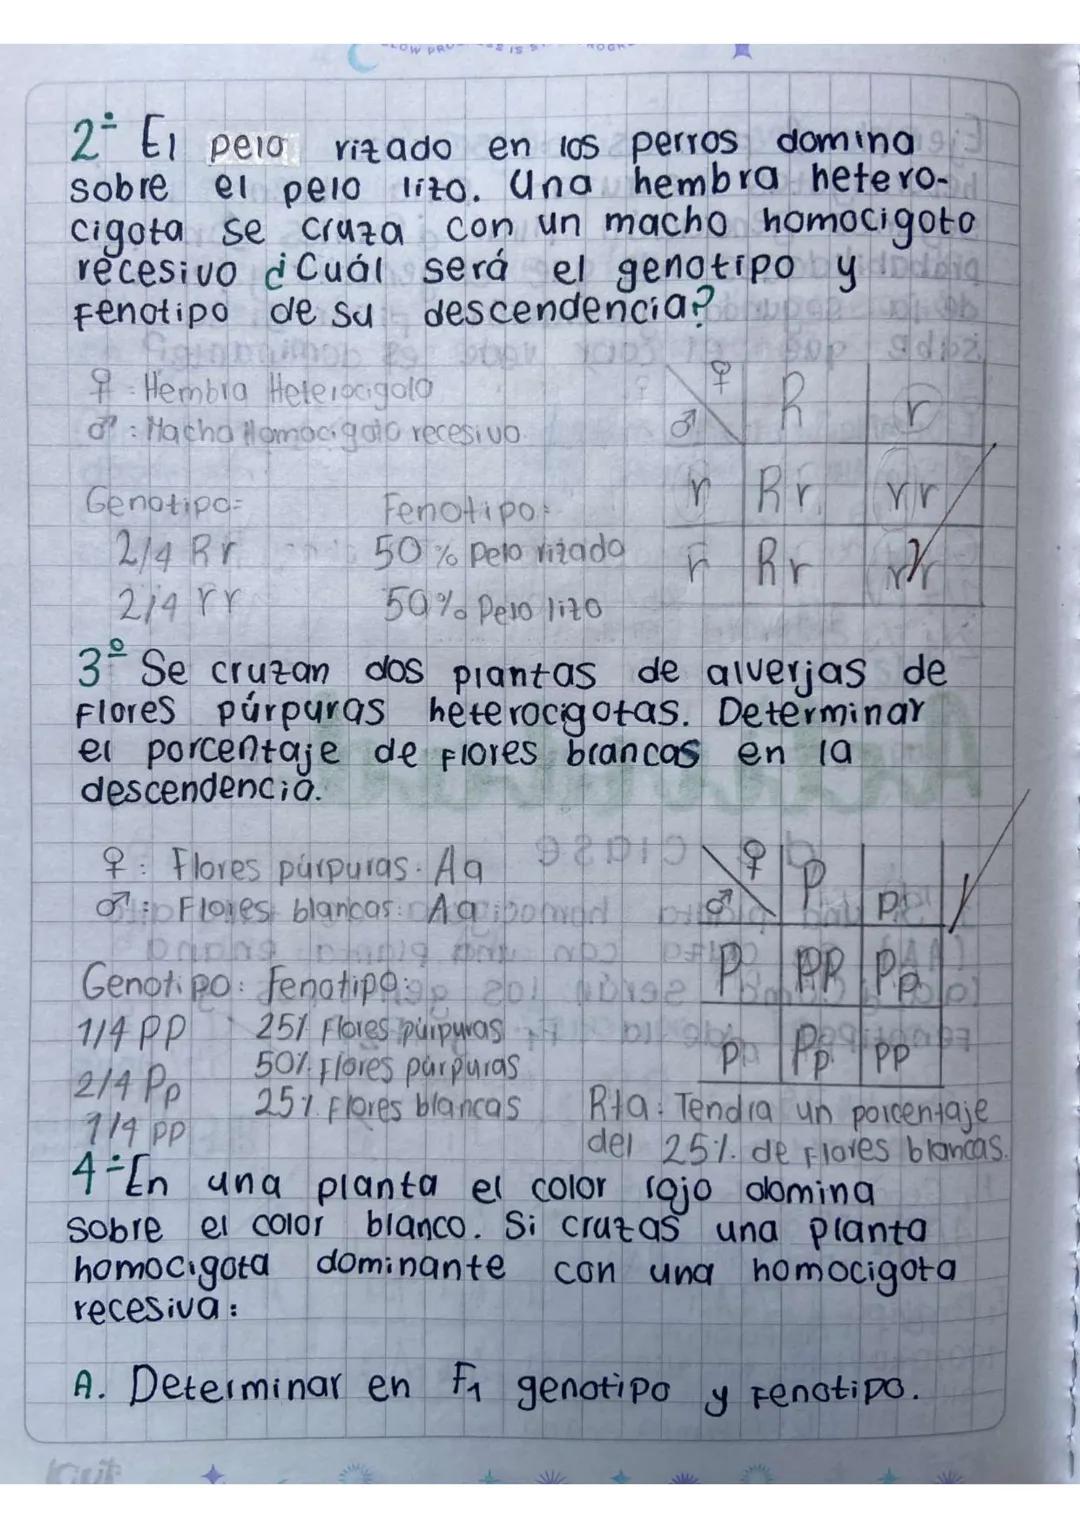 2÷ El pelo rizado en los perros domina
sobre el pelo lizo. Una hembra hetero-
cigota se cruza con un macho homocigoto
recesivo ¿Cuál será el genotipo y
Fenotipo de su descendencia?
♀: Hembra Heterocigoto
♂: Macho Homocigoto recesivo
♀ R r
♂
r Rr rr
r Rr rr
Genotipo: Fenotipo:
2/4 Rr 50% Pelo rizado
2/4 rr 50% Pelo lizo
3º Se cruzan dos plantas de alverjas de
Flores púrpuras heterocigotas. Determinar
el porcentaje de Flores brancas en la
descendencia.
♀: Flores púrpuras. Aa
♂: Flores blancas: Aa
♀ P p
♂
P PP Pp
p Pp pp
Genotipo: Fenotipo:
1/4 PP 25% Flores púrpuras
2/4 Pp 50% Flores púrpuras
1/4 pp 25% Flores blancas
Rta: Tendra un porcentaje
del 25% de Flores blancas.
4÷ En una planta el color rojo domina
sobre el color blanco. Si cruzas una planta
homocigota dominante con una homocigota
recesiva:
A. Determinar en F1 genotipo y Fenotipo.